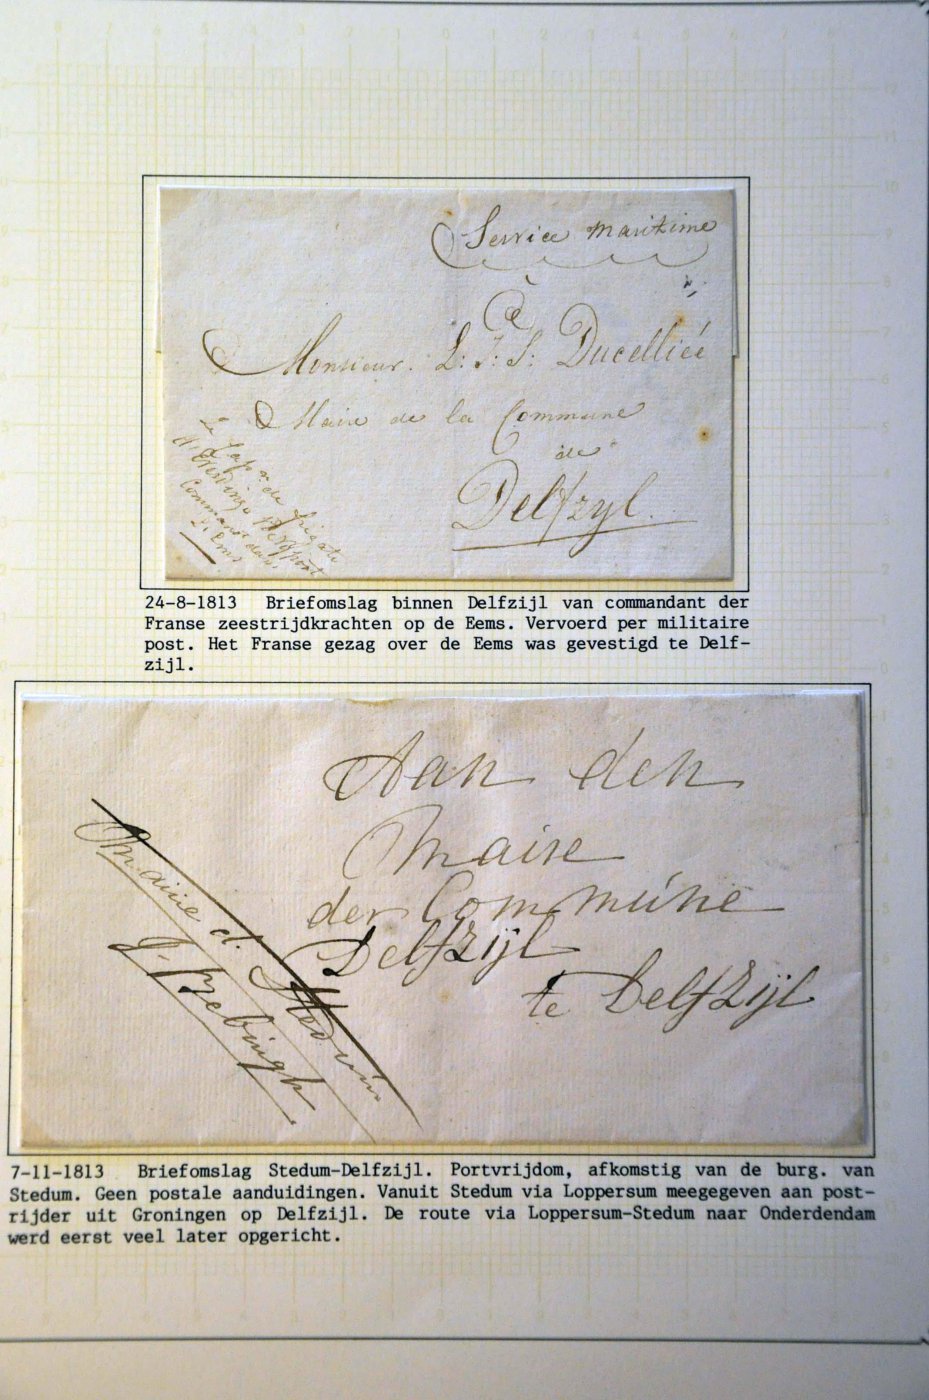 Service maritime
à
Monsieur. L: J: S: Ducelliée
Maire de la Commune
de
Delfzyl.
Le Cap.n de frigate
Commandt dans
L'Ems
24-8-1813 Briefomslag binnen Delfzijl van commandant der
Franse zeestrijdkrachten op de Eems. Vervoerd per militaire
post. Het Franse gezag over de Eems was gevestigd te Delf-
zijl.
Aan den
Maire
der Commúne
Delfzijl
te Delfzijl
Maire d. Stedum
7-11-1813 Briefomslag Stedum-Delfzijl. Portvrijdom, afkomstig van de burg. van
Stedum. Geen postale aanduidingen. Vanuit Stedum via Loppersum meegegeven aan post-
rijder uit Groningen op Delfzijl. De route via Loppersum-Stedum naar Onderdendam
werd eerst veel later opgericht.